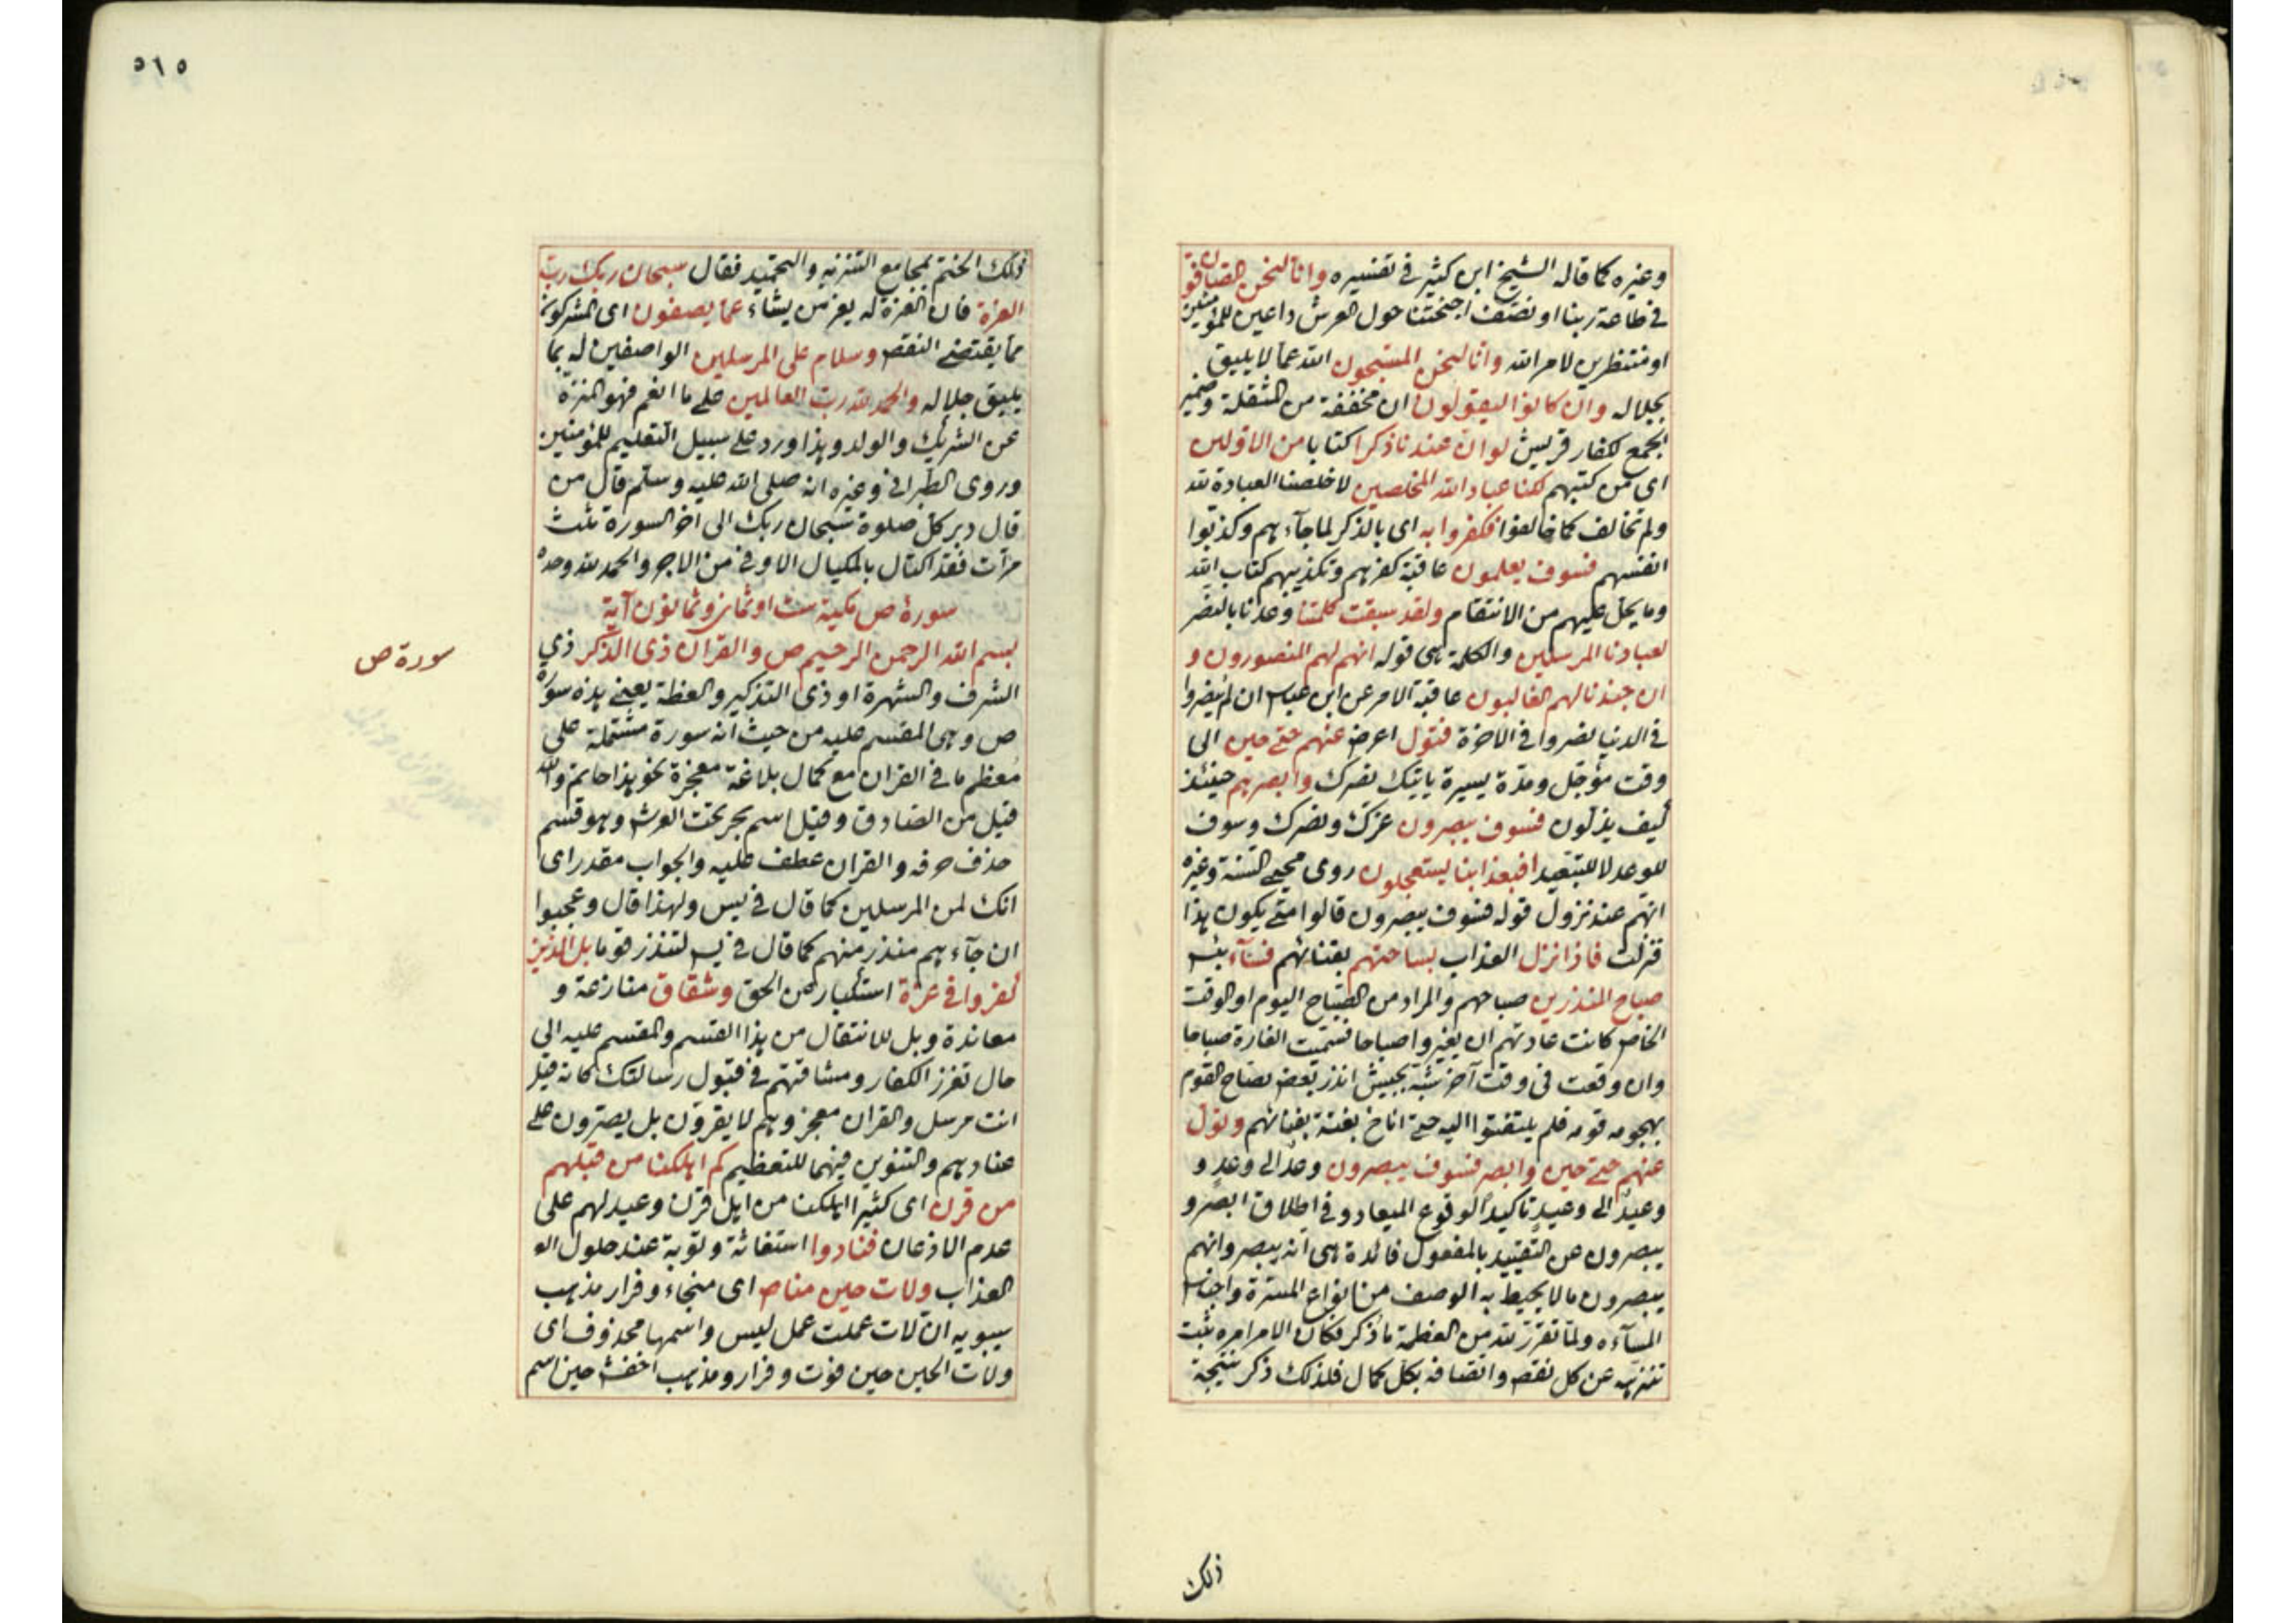 وغيره كما قاله الشيخ ابن كثير فى تفسيره وانا لنحن الصافون
فى طاعة ربنا او نصف اجنحتنا حول العرش داعين للمؤمنين
او منتظرين لامر الله وانا لنحن المسبحون الله عما لا يليق
بجلاله وان كانوا ليقولون ان مخففة من المثقلة وضمير
الجمع لكفار قريش لو ان عندنا ذكرا كتابا من الاولين
اى من كتبهم لكنا عباد الله المخلصين لاخلصنا العبادة لله
ولم نخالف كما خالفوا فكفروا به اى بالذكر لما جآءهم وكذبوا
انفسهم فسوف يعلمون عاقبة كفرهم وتكذيبهم كتاب الله
وما يحل عليهم من الانتقام ولقد سبقت كلمتنا وعدنا بالنصر
لعبادنا المرسلين والكلمة هى قوله انهم لهم المنصورون و
ان جندنا لهم الغالبون عاقبة الامر عن ابن عباس ان لم ينصروا
فى الدنيا نصروا فى الاخرة فتول اعرض عنهم حتى حين الى
وقت مؤجل ومدة يسيرة ياتيك نصرك وابصرهم حينئذ
كيف يذلون فسوف يبصرون عزك ونصرك وسوف
للوعد لا للتبعيد افبعذابنا يستعجلون روى محيى السنة وغيره
انهم عند نزول قوله فسوف يبصرون قالوا متى يكون هذا
فنزلت فاذا نزل العذاب بساحتهم بفنائهم فسآء بئس
صباح المنذرين صباحهم والمراد من الصباح اليوم او الوقت
الخاص كانت عادتهم ان يغيروا صباحا فسميت الغارة صباحا
وان وقعت فى وقت آخر شبه بجيش انذر بعض نصاح القوم
بهجومه قومه فلم يلتفتوا اليه حتى اناخ بغتة بفنائهم وتول
عنهم حتى حين وابصر فسوف يبصرون وعد الى وعد و
وعيد الى وعيد تاكيدا لوقوع الميعاد وفى اطلاق ابصر و
يبصرون عن التقييد بالمفعول فائدة هى انه يبصر وانهم
يبصرون ما لا يحيط به الوصف من انواع المسرة واجناس
المسآءه ولما تقرر لله من العظمة ما ذكر فكان الامر امره ثبت
تنزيهه عن كل نقص واتصافه بكل كمال فلذلك ذكر نتيجة
ذلك
٥١٥
ذلك الختم بمجامع التنزيه والتحميد فقال سبحان ربك رب
العزة فان العزة له يعز من يشاء عما يصفون اى المشركون
مما يقتضى النقص وسلام على المرسلين الواصفين له بما
يليق جلاله والحمد لله رب العالمين على ما انعم فهو المنزه
عن الشريك والولد وهذا ورد على سبيل التعليم للمؤمنين
وروى الطبرانى وغيره انه صلى الله عليه وسلم قال من
قال دبر كل صلوة سبحان ربك الى آخر السورة ثلث
مرات فقد اكتال بالمكيال الاوفى من الاجر والحمد لله وحده
سورة ص مكية ست او ثمان وثمانون آية
بسم الله الرحمن الرحيم ص والقرآن ذى الذكر ذي
الشرف والشهرة او ذى التذكير والعظة يعنى هذه سورة
ص وهى المقسم عليه من حيث انه سورة مشتملة على
معظم ما فى القران مع كمال بلاغة معجزة نحو هذا حاتم والله
قيل من الصادق وقيل اسم بحر تحت العرش وهو قسم
حذف حرفه والقران عطف عليه والجواب مقدر اى
انك لمن المرسلين كما قال فى يس ولهذا قال وعجبوا
ان جآءهم منذر منهم كما قال فى يس لتنذر قوما بل الذين
كفروا فى عزة استكبار عن الحق وشقاق منازعة و
معاندة وبل للانتقال من هذا القسم والمقسم عليه الى
حال تعزز الكفار ومشاقتهم فى قبول رسالتك كانه قيل
انت مرسل والقران معجز وهم لا يقرون بل يصرون على
عنادهم والتنوين فيهما للتعظيم كم اهلكنا من قبلهم
من قرن اى كثيرا اهلكنا من اهل قرن وعيد لهم على
عدم الاذعان فنادوا استغاثة وتوبة عند حلول الو
العذاب ولات حين مناص اى منجاء وفرار مذهب
سيبويه ان لات عملت عمل ليس واسمها محذوف اى
ولات الحين حين فوت وفرار ومذهب اخفش حين اسم
سورة ص